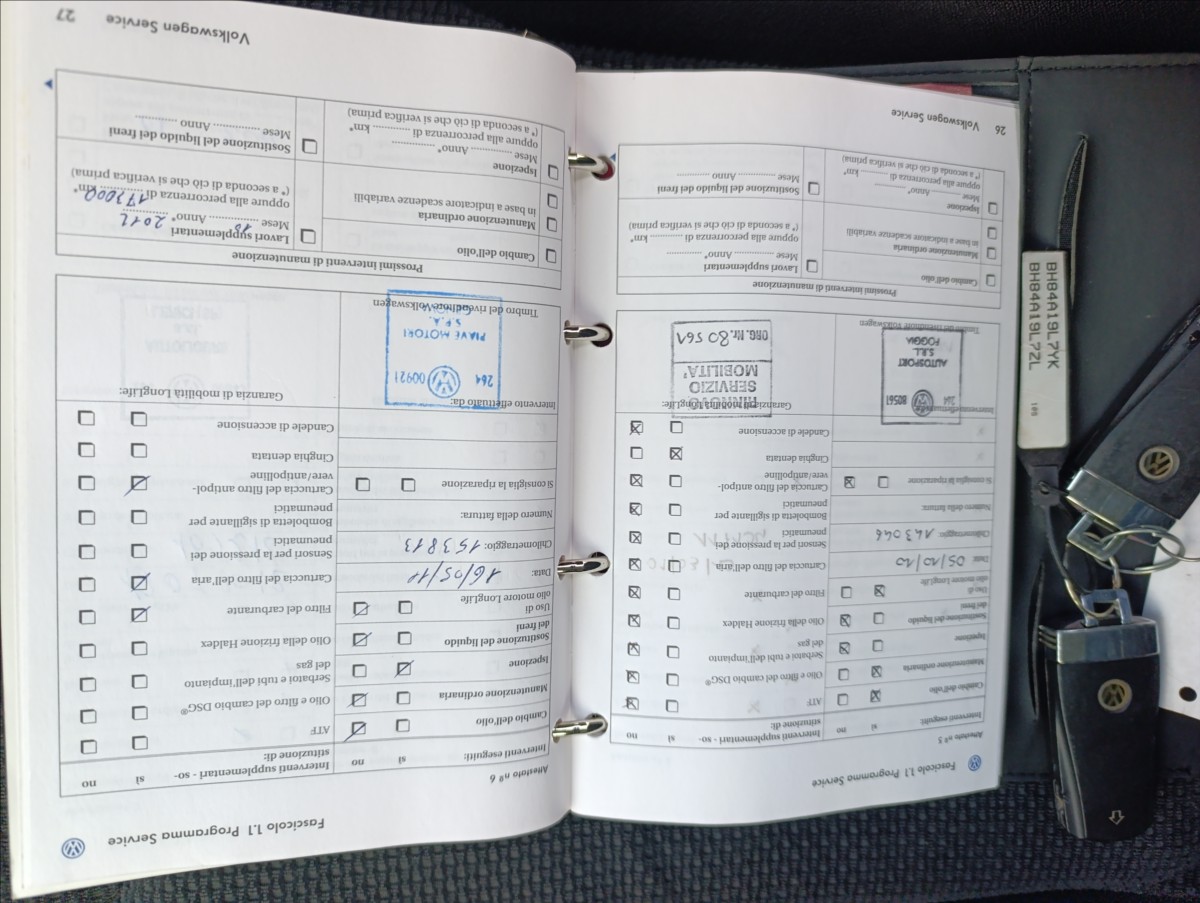 Fascicolo 1.1 Programma Service
Attestato n° 5
Interventi eseguiti: sì no
Cambio dell'olio
Manutenzione ordinaria
Ispezione
Sostituzione del liquido
dei freni
Uso di
olio motore LongLife
Data: 05/10/10
Chilometraggio: 143046
Numero della fattura:
Si consiglia la riparazione
Intervento effettuato da:
264 80561
AUTOSPORT
S.R.L.
FOGGIA
Timbro del rivenditore Volkswagen
Interventi supplementari - so-
stituzione di: sì no
ATF
Olio e filtro del cambio DSG®
Serbatoi e tubi dell'impianto
del gas
Olio della frizione Haldex
Filtro del carburante
Cartuccia del filtro dell'aria
Sensori per la pressione dei
pneumatici
Bomboletta di sigillante per
pneumatici
Cartuccia del filtro antipol-
vere/antipolline
Cinghia dentata
Candele di accensione
Garanzia di mobilità LongLife:
RINNOVO
SERVIZIO
MOBILITA'
ORG. Nr. 80561
Prossimi interventi di manutenzione
Cambio dell'olio
Manutenzione ordinaria
in base a indicatore scadenze variabili
Ispezione
Mese ............ Anno* ............
oppure alla percorrenza di ............ km*
(* a seconda di ciò che si verifica prima)
Lavori supplementari
Mese ............ Anno* ............
oppure alla percorrenza di ............ km*
(* a seconda di ciò che si verifica prima)
Sostituzione del liquido dei freni
Mese ............ Anno ............
26 Volkswagen Service
Fascicolo 1.1 Programma Service
Attestato n° 6
Interventi eseguiti: sì no
Cambio dell'olio
Manutenzione ordinaria
Ispezione
Sostituzione del liquido
dei freni
Uso di
olio motore LongLife
Data: 16/05/
Chilometraggio: 153813
Numero della fattura:
Si consiglia la riparazione
Intervento effettuato da:
264 00921
PIAVE MOTORI
S.P.A.
Timbro del rivenditore Volkswagen
Interventi supplementari - so-
stituzione di: sì no
ATF
Olio e filtro del cambio DSG®
Serbatoi e tubi dell'impianto
del gas
Olio della frizione Haldex
Filtro del carburante
Cartuccia del filtro dell'aria
Sensori per la pressione dei
pneumatici
Bomboletta di sigillante per
pneumatici
Cartuccia del filtro antipol-
vere/antipolline
Cinghia dentata
Candele di accensione
Garanzia di mobilità LongLife:
Prossimi interventi di manutenzione
Cambio dell'olio
Manutenzione ordinaria
in base a indicatore scadenze variabili
Ispezione
Mese ............ Anno* ............
oppure alla percorrenza di ............ km*
(* a seconda di ciò che si verifica prima)
Lavori supplementari
Mese 10 Anno* 2012
oppure alla percorrenza di 173000 km*
(* a seconda di ciò che si verifica prima)
Sostituzione del liquido dei freni
Mese ............ Anno ............
Volkswagen Service 27
BH84A19L7YK
BH84A19L7ZL